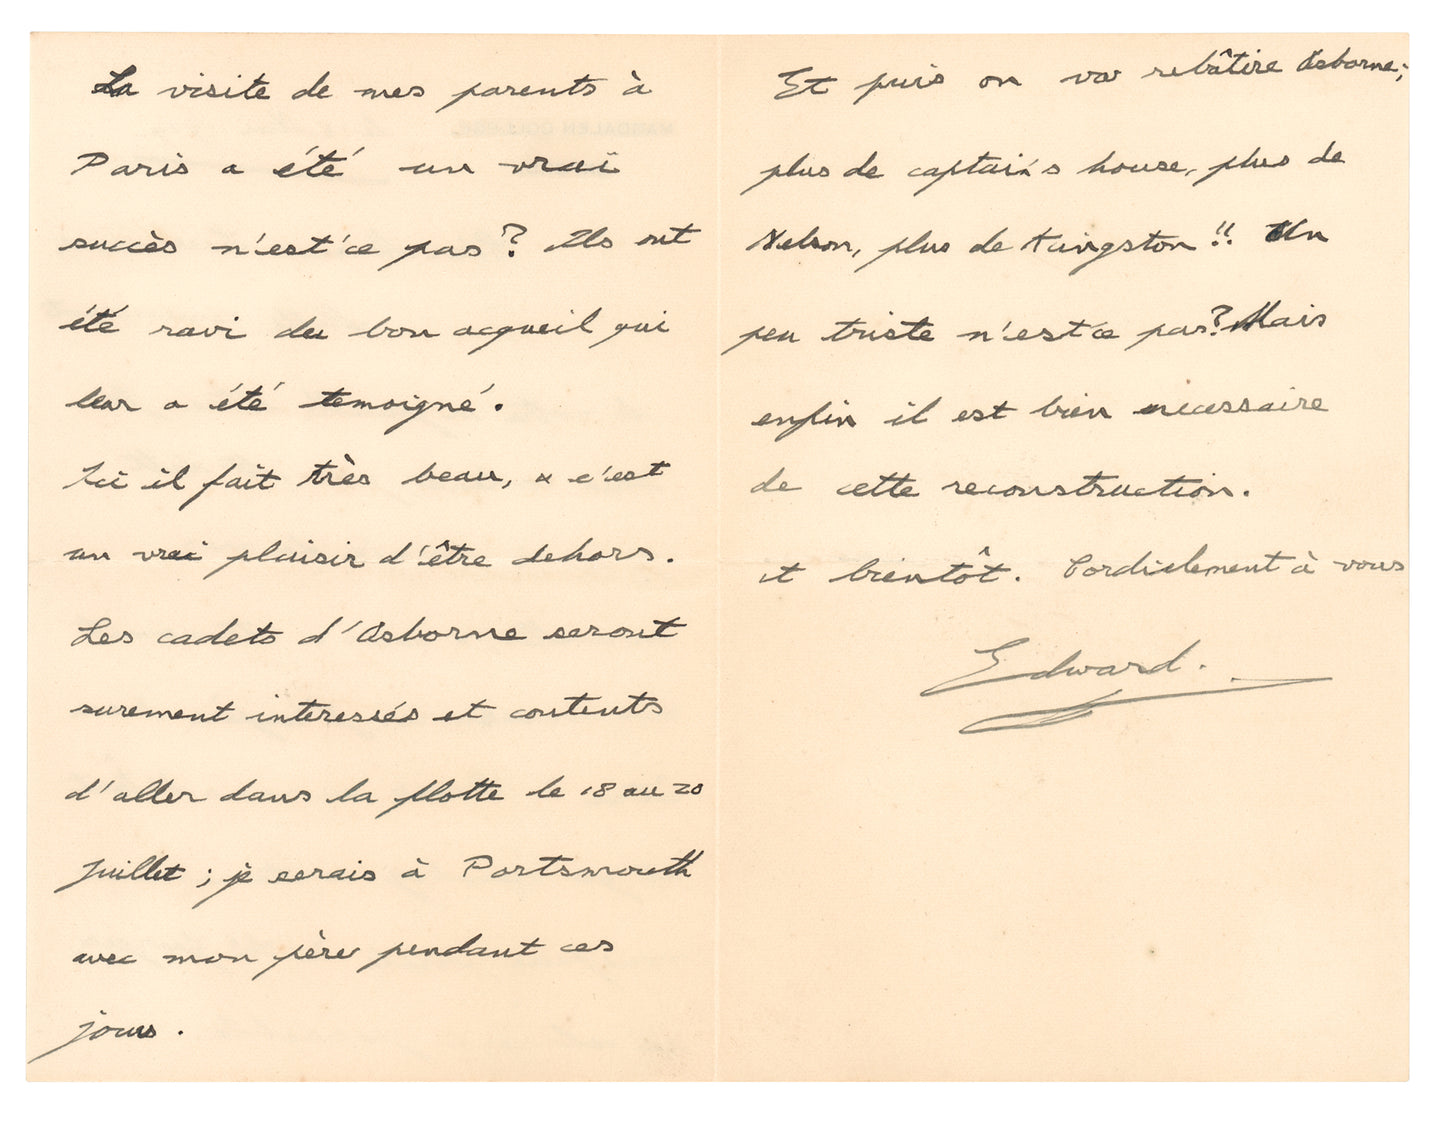 La visite de mes parents à
Paris a été un vrai
succès n'est'ce pas? Ils ont
été ravi du bon acqueil qui
leur a été temoigné.
Ici il fait très beau, & c'est
un vrai plaisir d'être dehors.
Les cadets d'Osborne seront
surement interessés et contents
d'aller dans la flotte le 18 au 20
Juillet; je serais à Portsmouth
avec mon père pendant ces
jours.
Et puis on va rebâtire Osborne;
plus de captain's house, plus de
Nelson, plus de Kingston!! Un
peu triste n'est'ce pas? Mais
enfin il est bien necessaire
de cette reconstruction.
et bientôt. Cordialement à vous
Edward.
MAGDALEN COLLEGE,